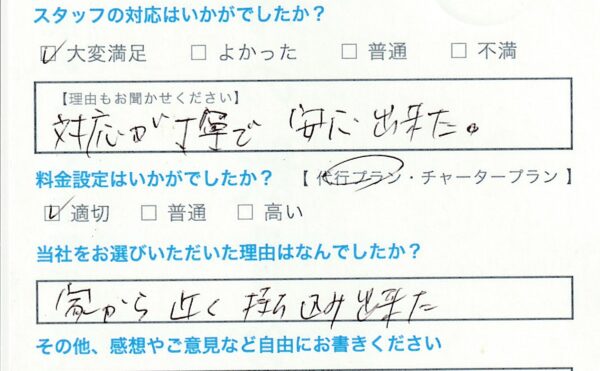 スタッフの対応はいかがでしたか？
☑ 大変満足 □ よかった □ 普通 □ 不満
【理由もお聞かせください】
対応が丁寧で 安心出来た。
料金設定はいかがでしたか？ 【 代行プラン・チャータープラン 】
☑ 適切 □ 普通 □ 高い
当社をお選びいただいた理由はなんでしたか？
家から近く 持ち込み出来た
その他、感想やご意見など自由にお書きください